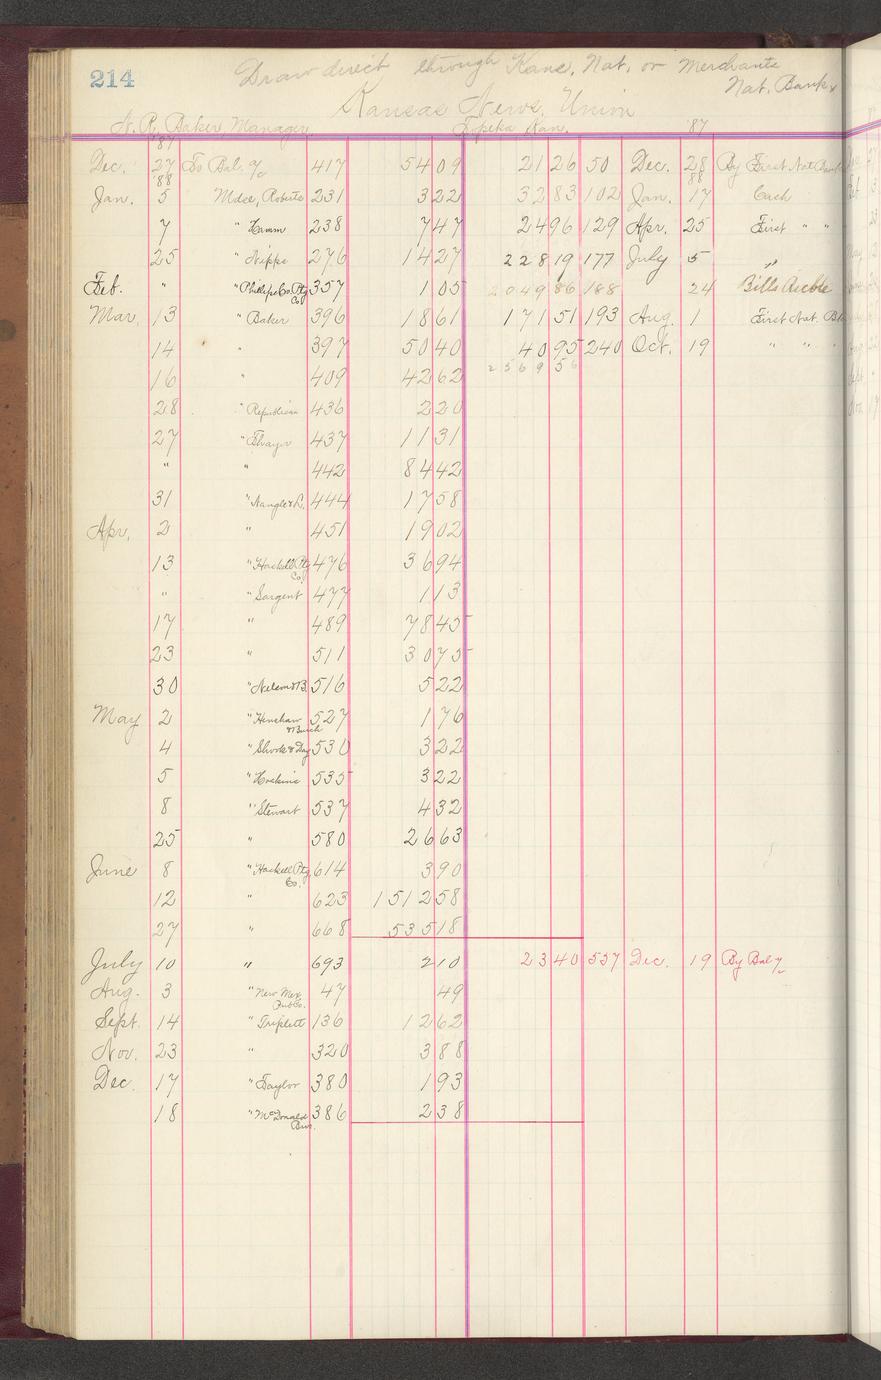 214
Draw direct through Kans. Nat. or Merchants
Nat. Bank
Kansas News Union
N. P. Baker, Manager Topeka Kan.
'87 '87
Dec. 27 To Bal. 417 54 09 21 26 50 Dec. 28 By First Nat Bank
'88 '88
Jan. 5 Mdse, Roberts 231 3 22 32 83 102 Jan. 17 Cash
7 " Hamm 238 7 47 24 96 129 Apr. 25 First " "
25 " Nipps 276 14 27 228 19 177 July 5 "
Feb. " " Phillips Co. Ptg Co 357 1 05 2049 86 188 24 Bills Recble
Mar. 13 " Baker 396 18 61 171 51 193 Aug. 1 First Nat. Bk
14 " 397 50 40 40 95 240 Oct. 19 " " "
2569 56
16 " 409 42 62
28 " Republican 436 2 20
27 " Thayer 437 11 31
" " 442 84 42
31 " Nangle & L. 444 17 58
Apr. 2 " 451 19 02
13 " Haskell Ptg Co. 476 36 94
" " Sargent 477 1 13
17 " 489 78 45
23 " 511 30 75
30 " Nelson & B. 516 5 22
May 2 " Henshaw & Burch 527 1 76
4 " Shook & Day 530 3 22
5 " Hoskins 535 3 22
8 " Stewart 537 4 32
25 " 580 26 63
June 8 " Haskell Ptg Co. 614 3 90
12 " 623 1512 58
27 " 668 535 18
July 10 " 693 2 10 23 40 537 Dec. 19 By Bal
Aug. 3 " New Mex. Pub Co. 47 49
Sept. 14 " Triplett 136 12 62
Nov. 23 " 320 3 88
Dec. 17 " Taylor 380 1 93
18 " McDonald Bros. 386 2 38